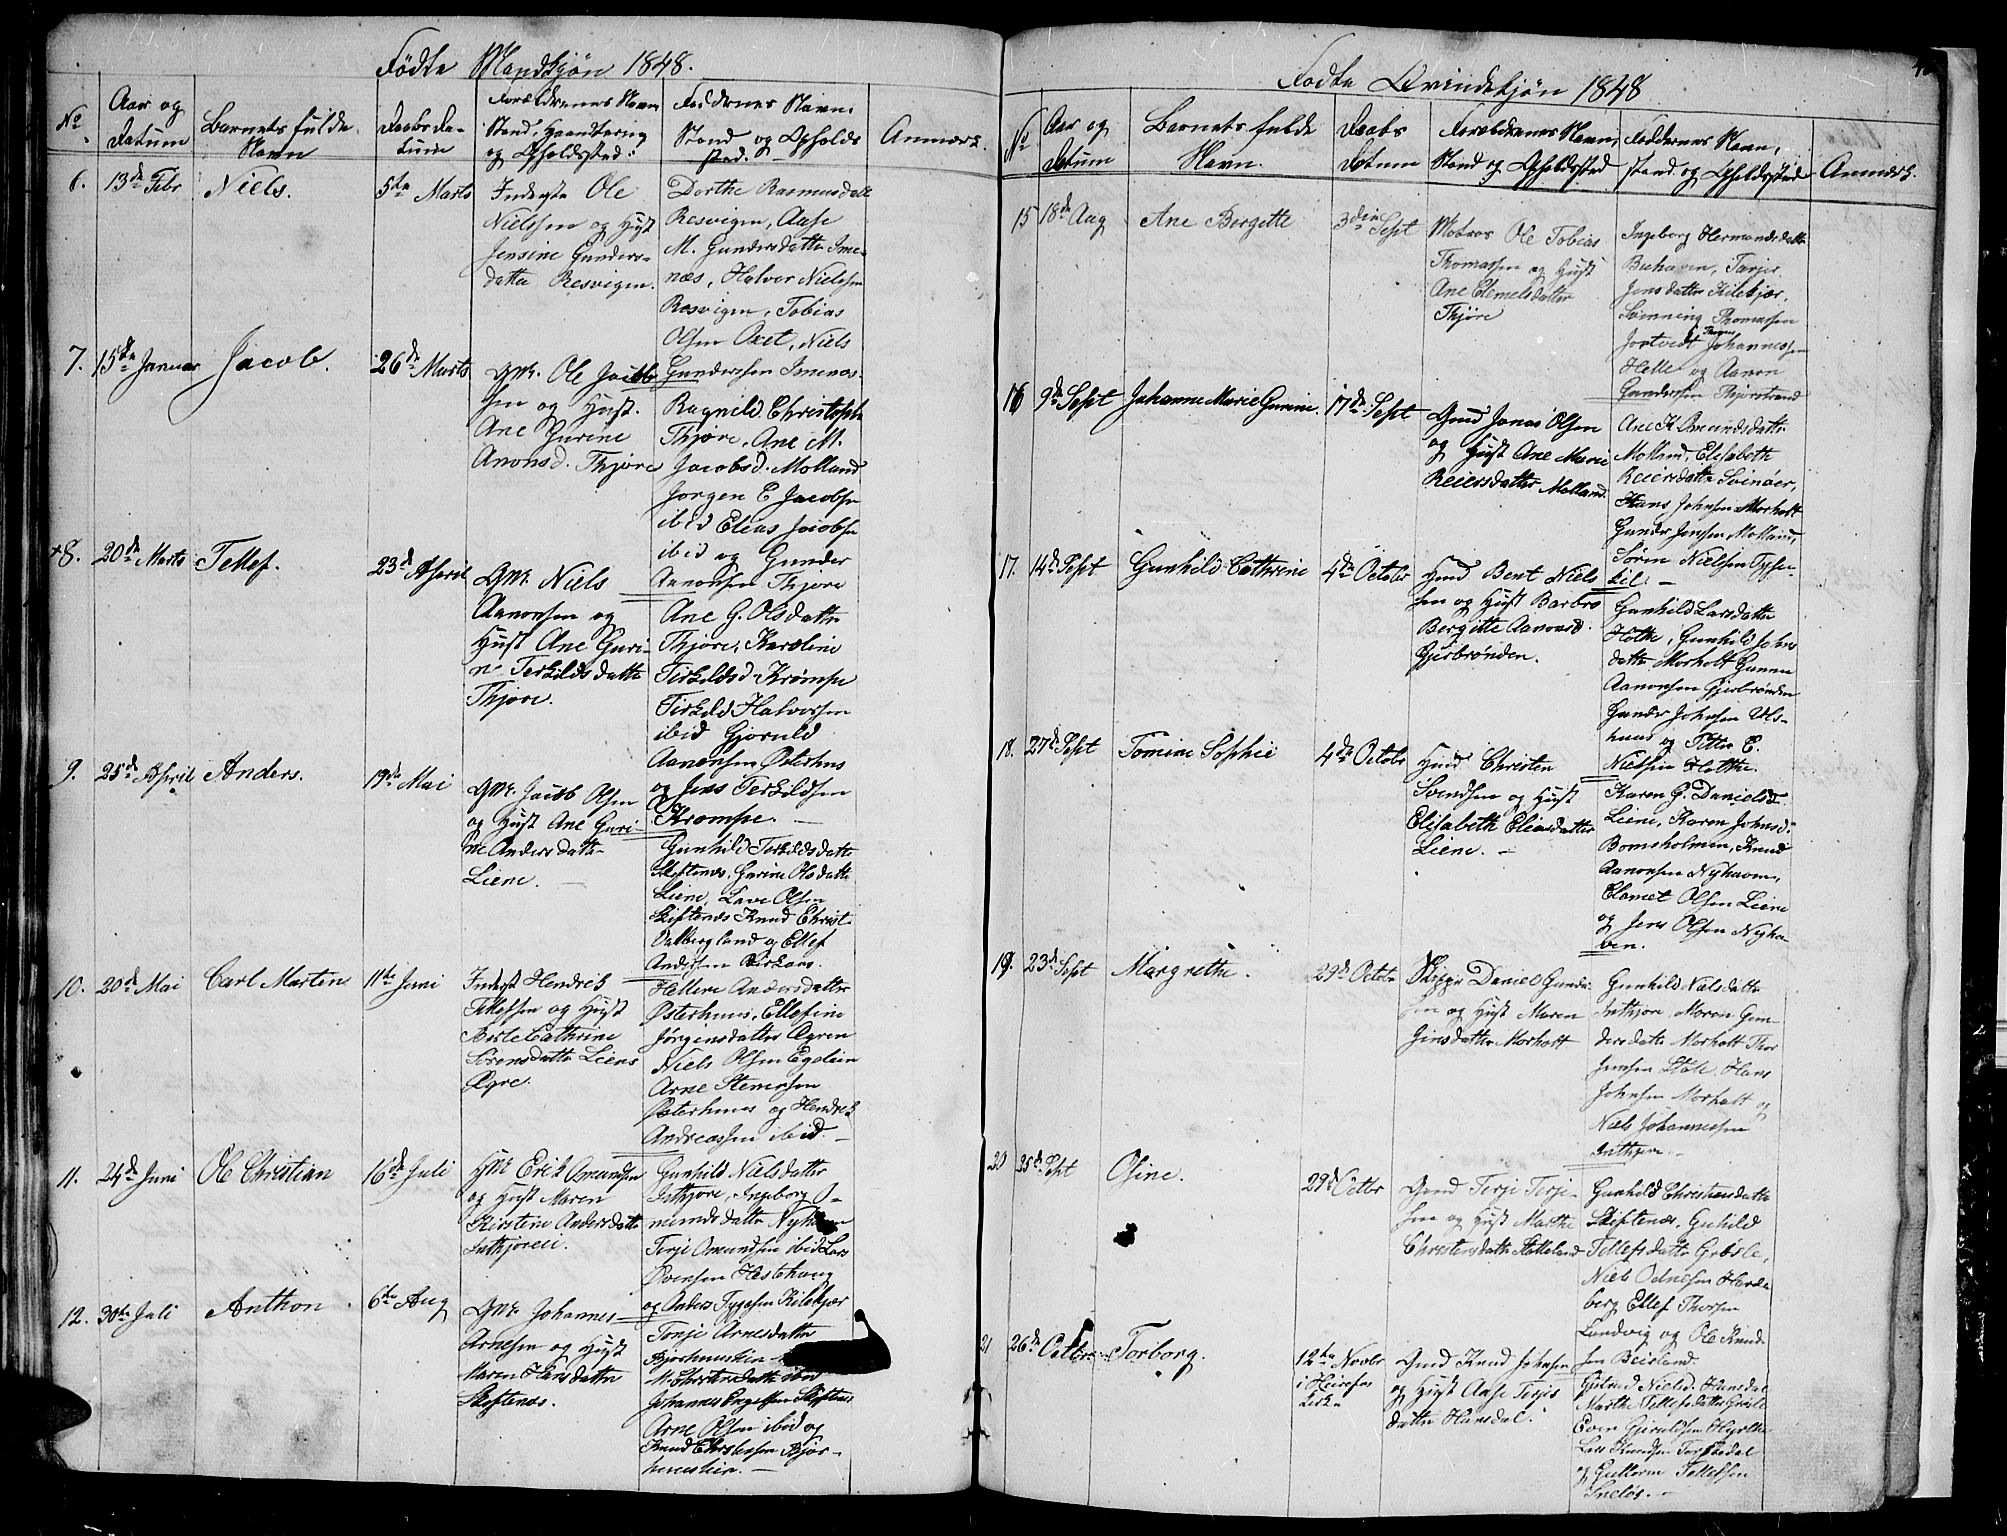 Fødte Mandkjøn 1848.
No
Aar og
Datum
Barnets fulde
Navn
Daabs Da-
tum
Forældrenes Navn
Stand, Haandtering
og Opholdssted.
Faddernes Navn,
Stand og Opholds
sted.
Anmærk.
6. 13de Febr Niels. 5te Marts
Inderste Ole
Nielssen og Hust
Jensine Gunders-
datter Resvigen.
Dorthe Rasmusdatt
Resvigen, Aase
M. Gundersdatter Ime-
næs, Halvor Nielssen
Resvigen, Tobias
Olsen Oxet, Niels
Gunderssen Imenæs.
7. 15de Januar Jacob. 26de Marts
Gmd. Ole Jacob-
sen og Hust.
Ane Gurine
Anonsd. Thjøre
Ragnild Christophs
Thjøre, Ane M.
Jacobsd. Molland
Jørgen E Jacobse
ibid Elias Jacobse
ibid og Gunder
Aanonsen Thjøre
+8. 20de Marts Tellef. 23de April
Gmd. Niels
Aanonsen og
Hust Ane Guri-
ne Terkildsdatter
Thjøre.
Ane G. Olsdatter
Thjøre, Karoline
Tirkildsd. Krømpe
Tirkild Halvorssen
ibid Gjeruld
Aanonsen Østerhus
og Jens Terkildsen
Krompe.
9. 25de April Anders. 19de Mai
Gmd. Jacob Olsen
og Hust Ane Guri-
ne Andersdatter
Liene.
Gunhild Terkildsdatter
Skiftenæs, Gurine Olsdatter
Liene, Lave Olsen
Skiftenæs Knud Christ.
Valbergland og Ellef
Andersen Birkaas.
10. 20de Mai Carl Marten 11te Juni
Inderst Hendrik
Tellefsen og Hust
Aasle Cathrine
Sørensdatter Liens
Ægre.
Hellene Andersdatter
Østerhuus, Ellefine
Jørgensdatter Ægren
Niels Olsen Egelien
Arne Stenersen
Østerhuus og Hendrik
Andreassen ibid.
11. 24de Juni Ole Christian 16de Juli
Hmd. Erik Omundsen
og Hust Maren
Kirstine Andersdatter
Inthjøreie.
Gunhild Nielsdatter
Inthjøre, Ingeborg O-
mundsdatter Nyhaven
Terje Omundsen ibid Lars
Evensen Hestehaug
og Anders Tygesen Kilekjær
12. 30te Juli Anthon. 6te Aug
Gmd. Johannes
Arnesen og Hust
Maren Hansdatter
Skiftenæs.
Tonje Arnesdatter
Bjorhuustien
M. Christensdatter ibid
Johannes Engelsen Skiftnæs
Arne Olsen ibid og
Knud Christensen Bjor-
huustien.
Fødte Qvindekjøn 1848
No
Aar og
Datum
Barnets fulde
Navn.
Daabs
Datum
Forældrenes Navn,
Stand og Opholdssted
Faddernes Navn,
stand og Opholdssted
Anmærk.
15 18de Aug Ane Bergitte 3die Sept
Matros Ole Tobias
Thomassen og Hust
Ane Clemetsdatter
Thjøre
Ingeborg Hermandsdatter
Biehaven, Tarjer
Jensdatter Kilekjær,
Svenning Thomassen
Jortvedt Thom Johannessen
Helle og Aanon
Gundersen Thjorestrand
16 9de Sept Johanne Marie Gurine. 17de Sept
Gmd Jonas Olsen
og Hust Ane Marie
Reiersdatter Molland.
Ane K. Omundsdatter
Molland, Elisabeth
Reiersdatter Svinøer,
Hans Johnsen Morholt
Gunder Jensen Molland,
Søren Nielsen Tysse-
kil.
17. 14de Sept Gunhild Cathrine 4de October
Hmd Bent Niels
sen og Hust Barbro
Bergitte Aanonsd.
Gjerbrønden.
Gunhild Larsdatter
Holte, Gunhild Johns
datter Morholt Gunne
Aanonsen Gjerbrønden
Gunder Johnsen Uls-
huus og Petter E.
Nielsen Holthe.
18. 27de Sept Tomine Sophie 4de Octobr
Hmd Christen
Svendsen og Hust
Elisabeth Eliasdatter
Liene.
Karen G. Danielsd.
Liene, Karen Johnsd.
Bomsholmen, Knud
Aanonsen Nyhaven,
Clemet Olsen Liene
og Jens Olsen Nyha-
ven.
19. 23de Sept Margrethe. 29de Octobr
Skipper Daniel Gunder
sen og Hust Maren
Jensdatter Morholt
Gunhild Nielsdatter
Inthjøre Maren Gun-
dersdatter Morholt Thor
Jensen Støle, Hans
Johnsen Morholt og
Niels Johannessen
Inthjøre.
20 25de Sept Osine. 29de Octbr
Gmd Terje Terje-
sen og Hust Marthe
Christensdatter Stølleland
Gunhild Christiansdatter
Skiftenæs, Guhild
Tellefsdatter Grøsle,
Niels Odnesen Harde
berg Ellef Thorsen
Landvig og Ole Knud-
sen Beisland.
21 26de Octbr Torborg. 12te Novbr
i Heirefos
kirke
Gmd Knud Johnsen
og Hust Aase Terjes
datter Hunsdal.
Gutred Nielsd. Hunsdal
Marthe Tellefsdatter Grøsle
Even Gjeruldsen Hyrthe
Lars Knudsen Torskedal
og Guttorm Tellefsen
Sneløs.